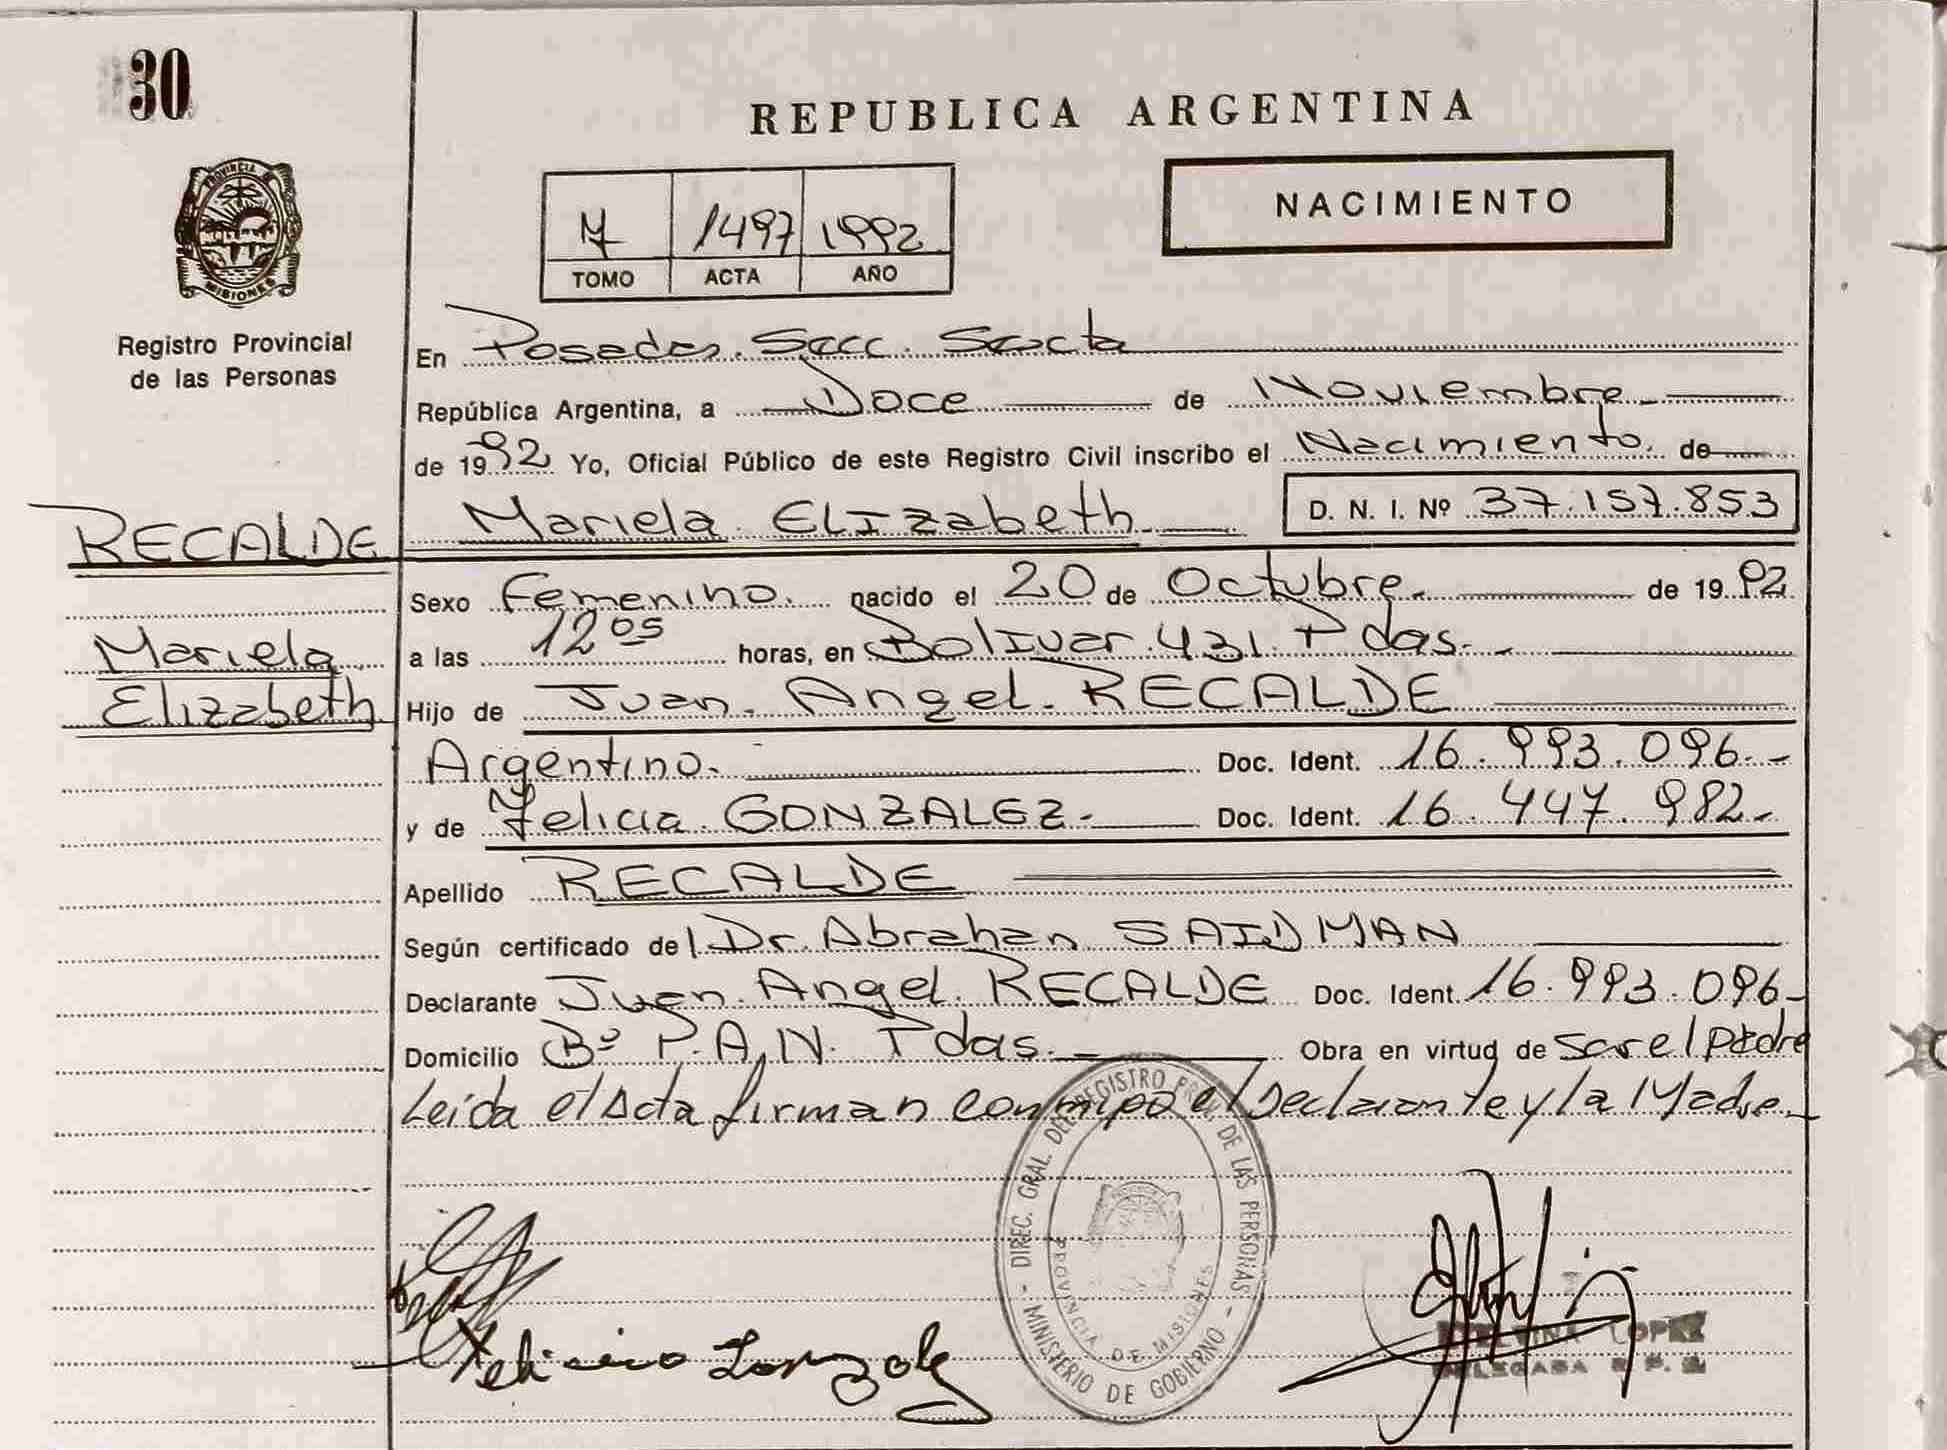 30
REPUBLICA ARGENTINA
NACIMIENTO
1497 1992
TOMO ACTA AÑO
PROVINCIA DE MISIONES
Registro Provincial
de las Personas
En Posadas. Secc. Sexta
República Argentina, a Doce de Noviembre
de 1992 Yo, Oficial Público de este Registro Civil inscribo el Nacimiento. de
RECALDE Mariela Elizabeth D. N. I. Nº 37.157.853
Sexo Femenino. nacido el 20 de Octubre. de 1992
Mariela a las 12 05 horas, en Bolivar 431. Pdas.
Elizabeth Hijo de Juan. Angel. RECALDE
Argentino. Doc. Ident. 16.993.096.-
y de Felicia GONZALEZ.- Doc. Ident. 16.447.982.-
Apellido RECALDE
Según certificado del Dr. Abrahan SAIDMAN
Declarante Juan. Angel. RECALDE Doc. Ident. 16.993.096-
Domicilio Bº P.A.N. Pdas.- Obra en virtud de ser el padre
Leida el Acta firman conmigo el Declarante y la Madre.
DIREC. GRAL. DEL REGISTRO PROV. DE LAS PERSONAS - MINISTERIO DE GOBIERNO -
PROVINCIA DE MISIONES
Felicia Gonzale
LOPEZ
DELEGADA